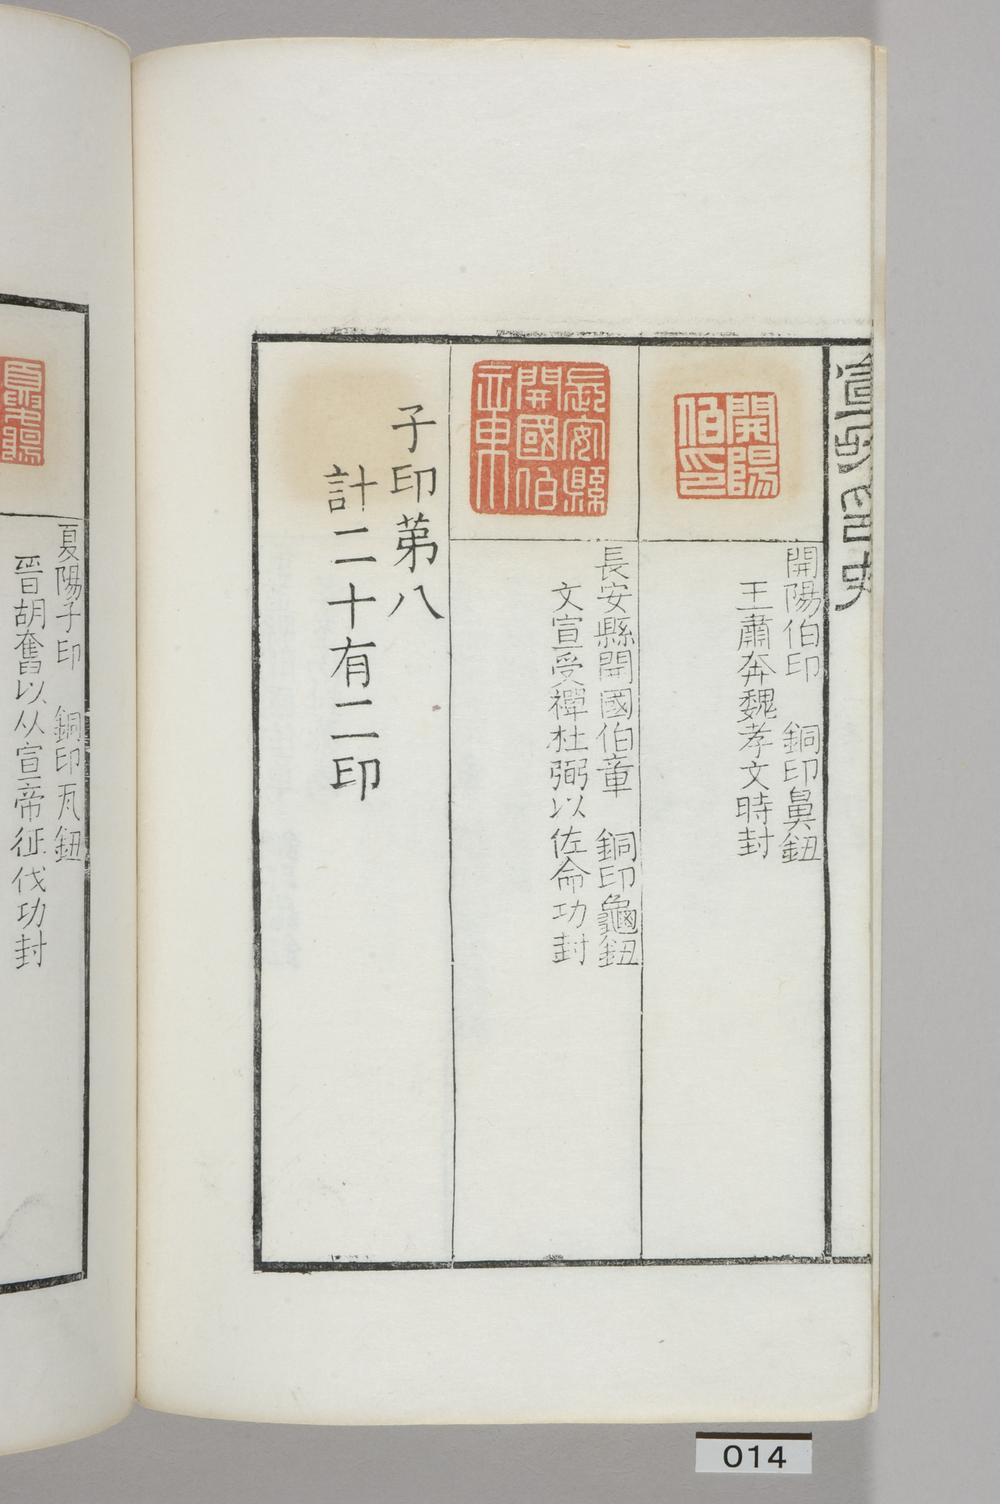 宣和印史
開陽伯印
開陽伯印　銅印鼻鈕
王肅奔魏孝文時封
長安縣開國伯章
長安縣開國伯章　銅印龜鈕
文宣受禪杜弼以佐命功封
子印苐八
計二十有二印
夏陽子印　銅印瓦鈕
晉胡奮以从宣帝征伐功封
014